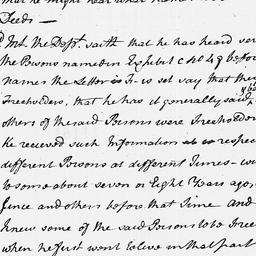 Deeds —
that the Dept. saith that he has heard seve
the Persons named in Exhibit C No. 49 befor
names the Letter F. is set say that they
Freeholders, that he has it generally said
others of the said Persons were Freeholder
he received such Information as to respec
different Persons at different Times -
to some about seven or Eight Years ago
since and others before that Time And
knew some of the said Persons to be Free
when he first went to live in that part